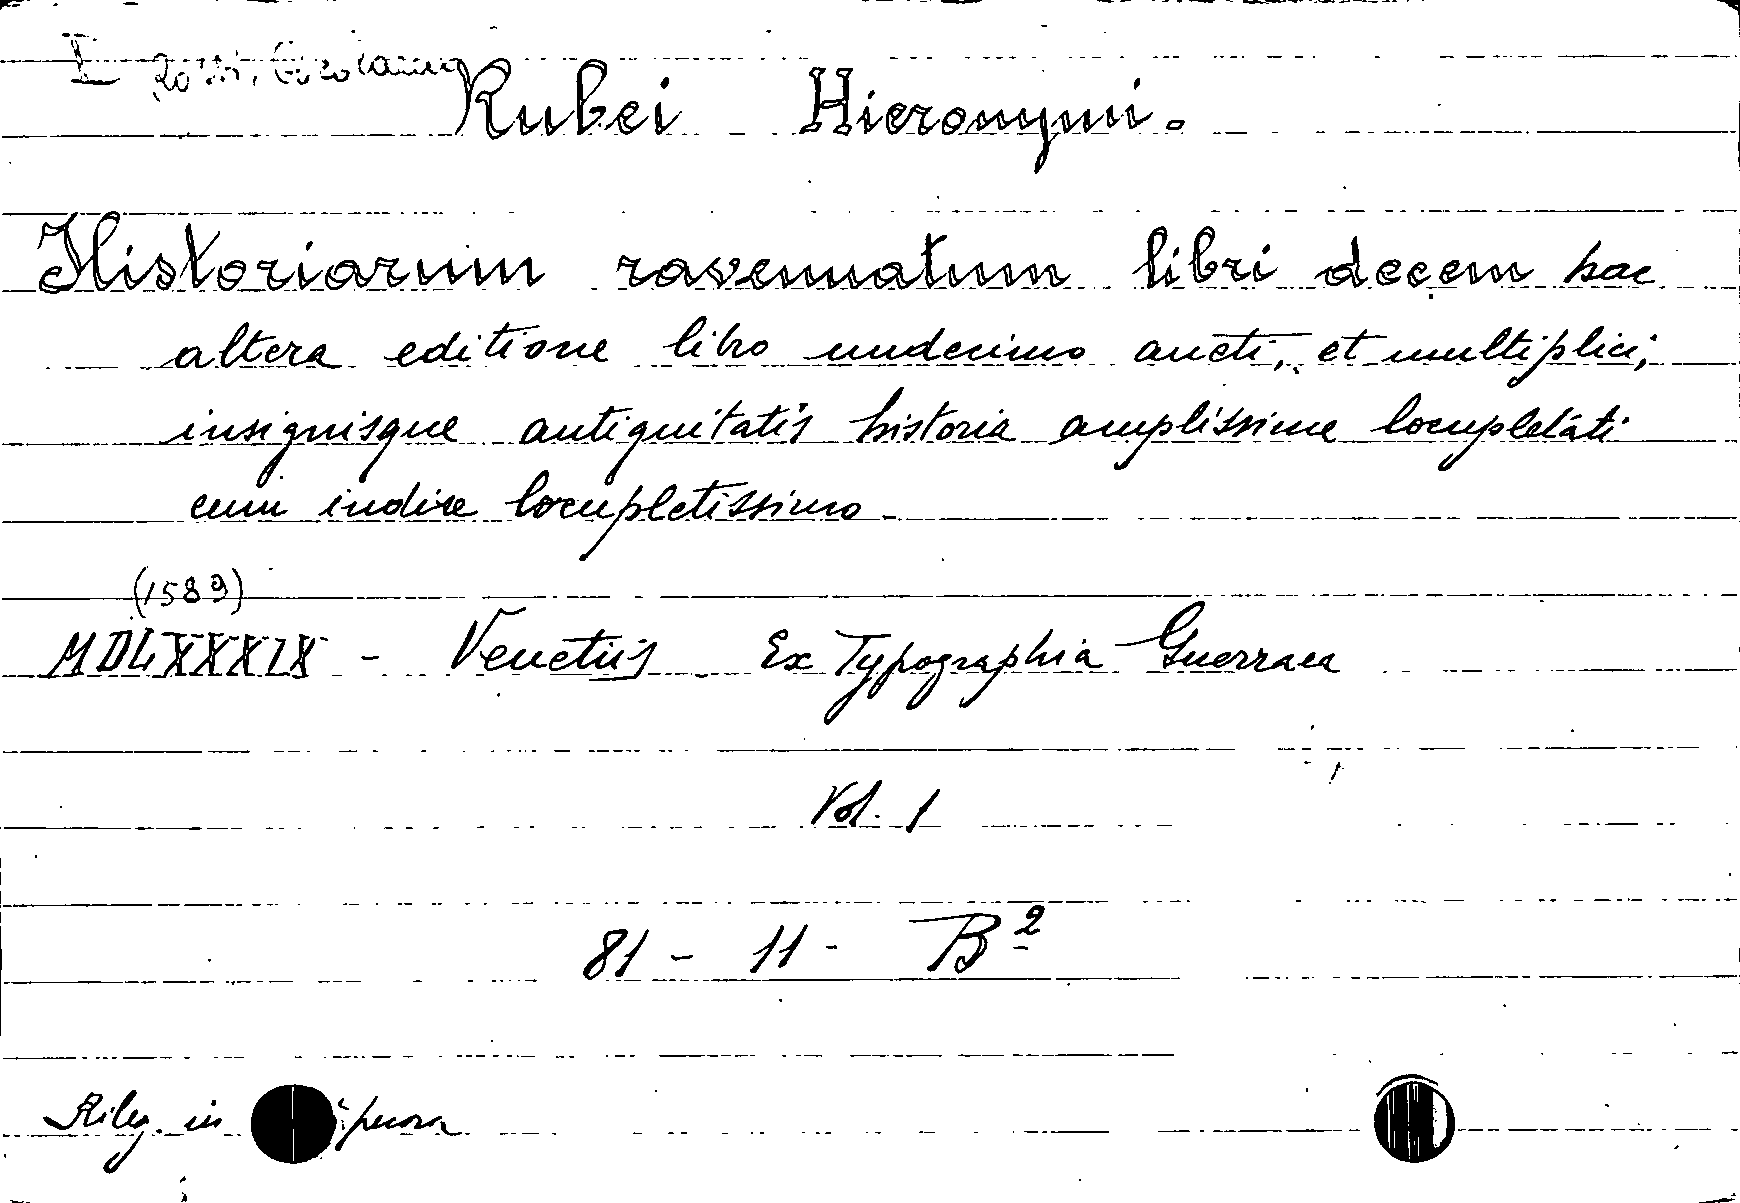 I Rossi, Girolamo
Rubei Hieronymi.
Historiarum ravennatum libri decem hac
altera editione libro undecimo aucti, et multiplici,
insignisque antiquitatis historia amplissime locupletati
cum indice locupletissimo
(1589)
MDLXXXIX - Venetiis Ex Typographia Guerraea
Vol. 1
81 - 11 - B2
Rileg. in